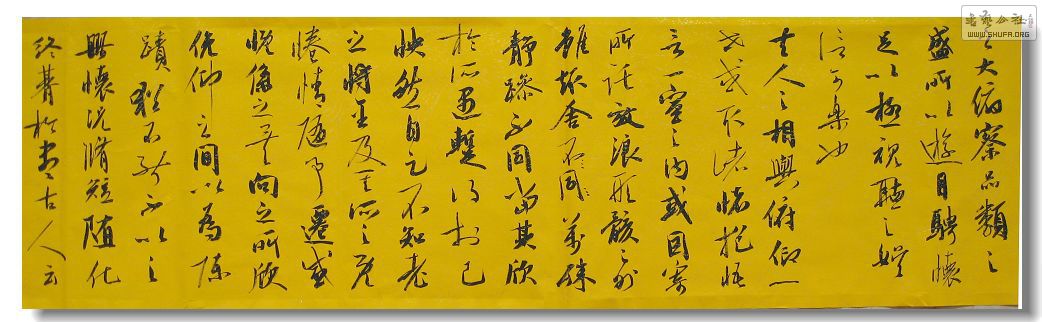 之大俯察品類之
盛所以遊目騁懷
足以極視聽之娛
信可樂也
夫人之相與俯仰一
世或取諸懷抱悟
言一室之內或因寄
所託放浪形骸之外
雖趣舍不同萬殊
靜躁不同當其欣
於所遇蹔得於己
快然自足不知老
之將至及其所之既
惓情隨事遷感
慨係之矣向之所欣
俛仰之間以為陳
蹟猶不能不以之
興懷況脩短隨化
終期於盡古人云
書藝公社
WWW.SHUFA.ORG